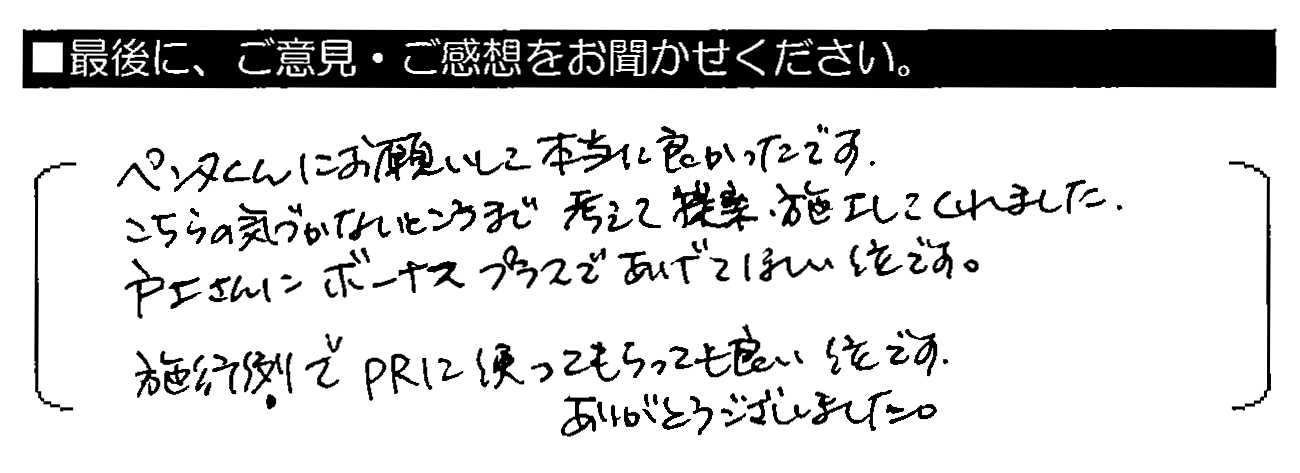 ■最後に、ご意見・ご感想をお聞かせください。
ペンタくんにお願いして本当に良かったです.
こちらの気づかないところまで 考えて提案.施工してくれました.
戸工さんに ボーナス プラスで あげてほしい 位です。
施行例で PRに使ってもらっても良い 位です.
ありがとうございました。